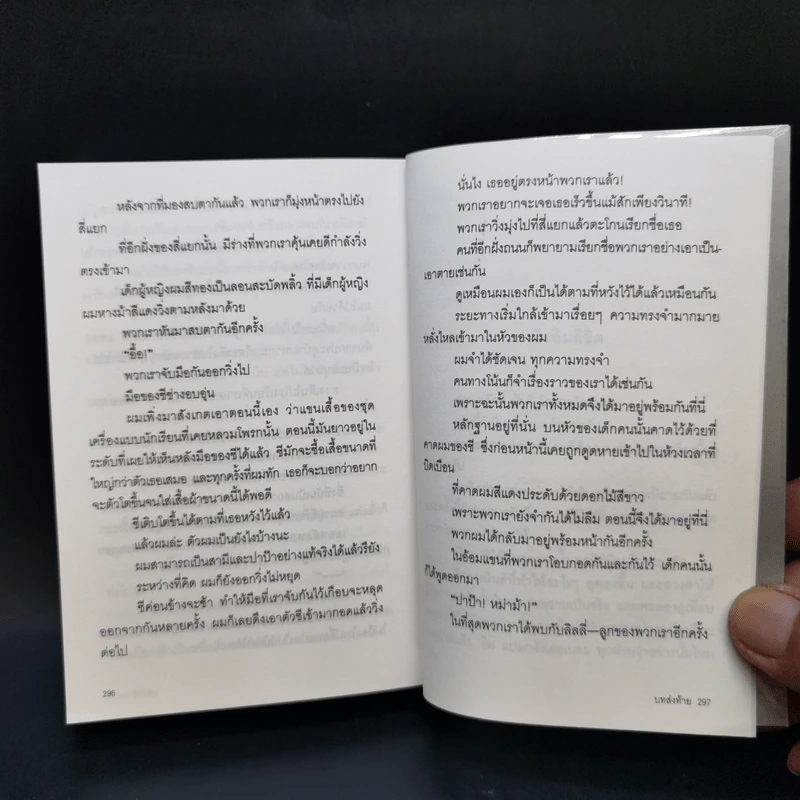 หลังจากที่มองสบตากันแล้ว พวกเราก็มุ่งหน้าตรงไปยัง
สี่แยก
ที่อีกฝั่งของสี่แยกนั้น มีร่างที่พวกเราคุ้นเคยดีกำลังวิ่ง
ตรงเข้ามา
เด็กผู้หญิงผมสีทองเป็นลอนสะบัดพลิ้ว ที่มีเด็กผู้หญิง
ผมหางม้าสีแดงวิ่งตามหลังมาด้วย
พวกเราหันมาสบตากันอีกครั้ง
“อื้อ!”
พวกเราจับมือกันออกวิ่งไป
มือของชีช่างอบอุ่น
ผมเพิ่งมาสังเกตเอาตอนนี้เอง ว่าแขนเสื้อของชุด
เครื่องแบบนักเรียนที่เคยหลวมโพรกนั้น ตอนนี้มันยาวอยู่ใน
ระดับที่เผยให้เห็นหลังมือของชีได้แล้ว ชีมักจะซื้อเสื้อขนาดที่
ใหญ่กว่าตัวเธอเสมอ และทุกครั้งที่ผมทัก เธอก็จะบอกว่าอยาก
จะตัวโตขึ้นจนใส่เสื้อผ้าขนาดนี้ได้พอดี
ชีเติบโตขึ้นได้ตามที่เธอหวังไว้แล้ว
แล้วผมล่ะ ตัวผมเป็นยังไงบ้างนะ
ผมสามารถเป็นสามีและปาป๊าอย่างแท้จริงได้แล้วรึยัง
ระหว่างที่คิด ผมก็ยังออกวิ่งไม่หยุด
ชีค่อนข้างจะช้า ทำให้มือที่เราจับกันไว้เกือบจะหลุด
ออกจากกันหลายครั้ง ผมก็เลยดึงเอาตัวชีเข้ามากอดแล้ววิ่ง
ต่อไป
296
นั่นไง เธออยู่ตรงหน้าพวกเราแล้ว!
พวกเราอยากจะเจอเธอเร็วขึ้นแม้สักเพียงวินาที!
พวกเราวิ่งมุ่งไปที่สี่แยกแล้วตะโกนเรียกชื่อเธอ
คนที่อีกฝั่งถนนก็พยายามเรียกชื่อพวกเราอย่างเอาเป็น-
เอาตายเช่นกัน
ดูเหมือนผมเองก็เป็นได้ตามที่หวังไว้ได้แล้วเหมือนกัน
ระยะทางเริ่มใกล้เข้ามาเรื่อยๆ ความทรงจำมากมาย
หลั่งไหลเข้ามาในหัวของผม
ผมจำได้ชัดเจน ทุกความทรงจำ
คนทางโน้นก็จำเรื่องราวของเราได้เช่นกัน
เพราะฉะนั้นพวกเราทั้งหมดจึงได้มาอยู่พร้อมกันที่นี่
หลักฐานอยู่ที่นั่น บนหัวของเด็กคนนั้นคาดไว้ด้วยที่
คาดผมของชี ซึ่งก่อนหน้านี้เคยถูกดูดหายเข้าไปในห้วงเวลาที่
บิดเบือน
ที่คาดผมสีแดงประดับด้วยดอกไม้สีขาว
เพราะพวกเรายังจำกันได้ไม่ลืม ตอนนี้จึงได้มาอยู่ที่นี่
พวกผมได้กลับมาอยู่พร้อมหน้ากันอีกครั้ง
ในอ้อมแขนที่พวกเราโอบกอดกันและกันไว้ เด็กคนนั้น
ก็ได้พูดออกมา
“ปาป๊า! หม่าม้า!”
ในที่สุดพวกเราได้พบกับลิลลี่—ลูกของพวกเราอีกครั้ง
บทส่งท้าย 297